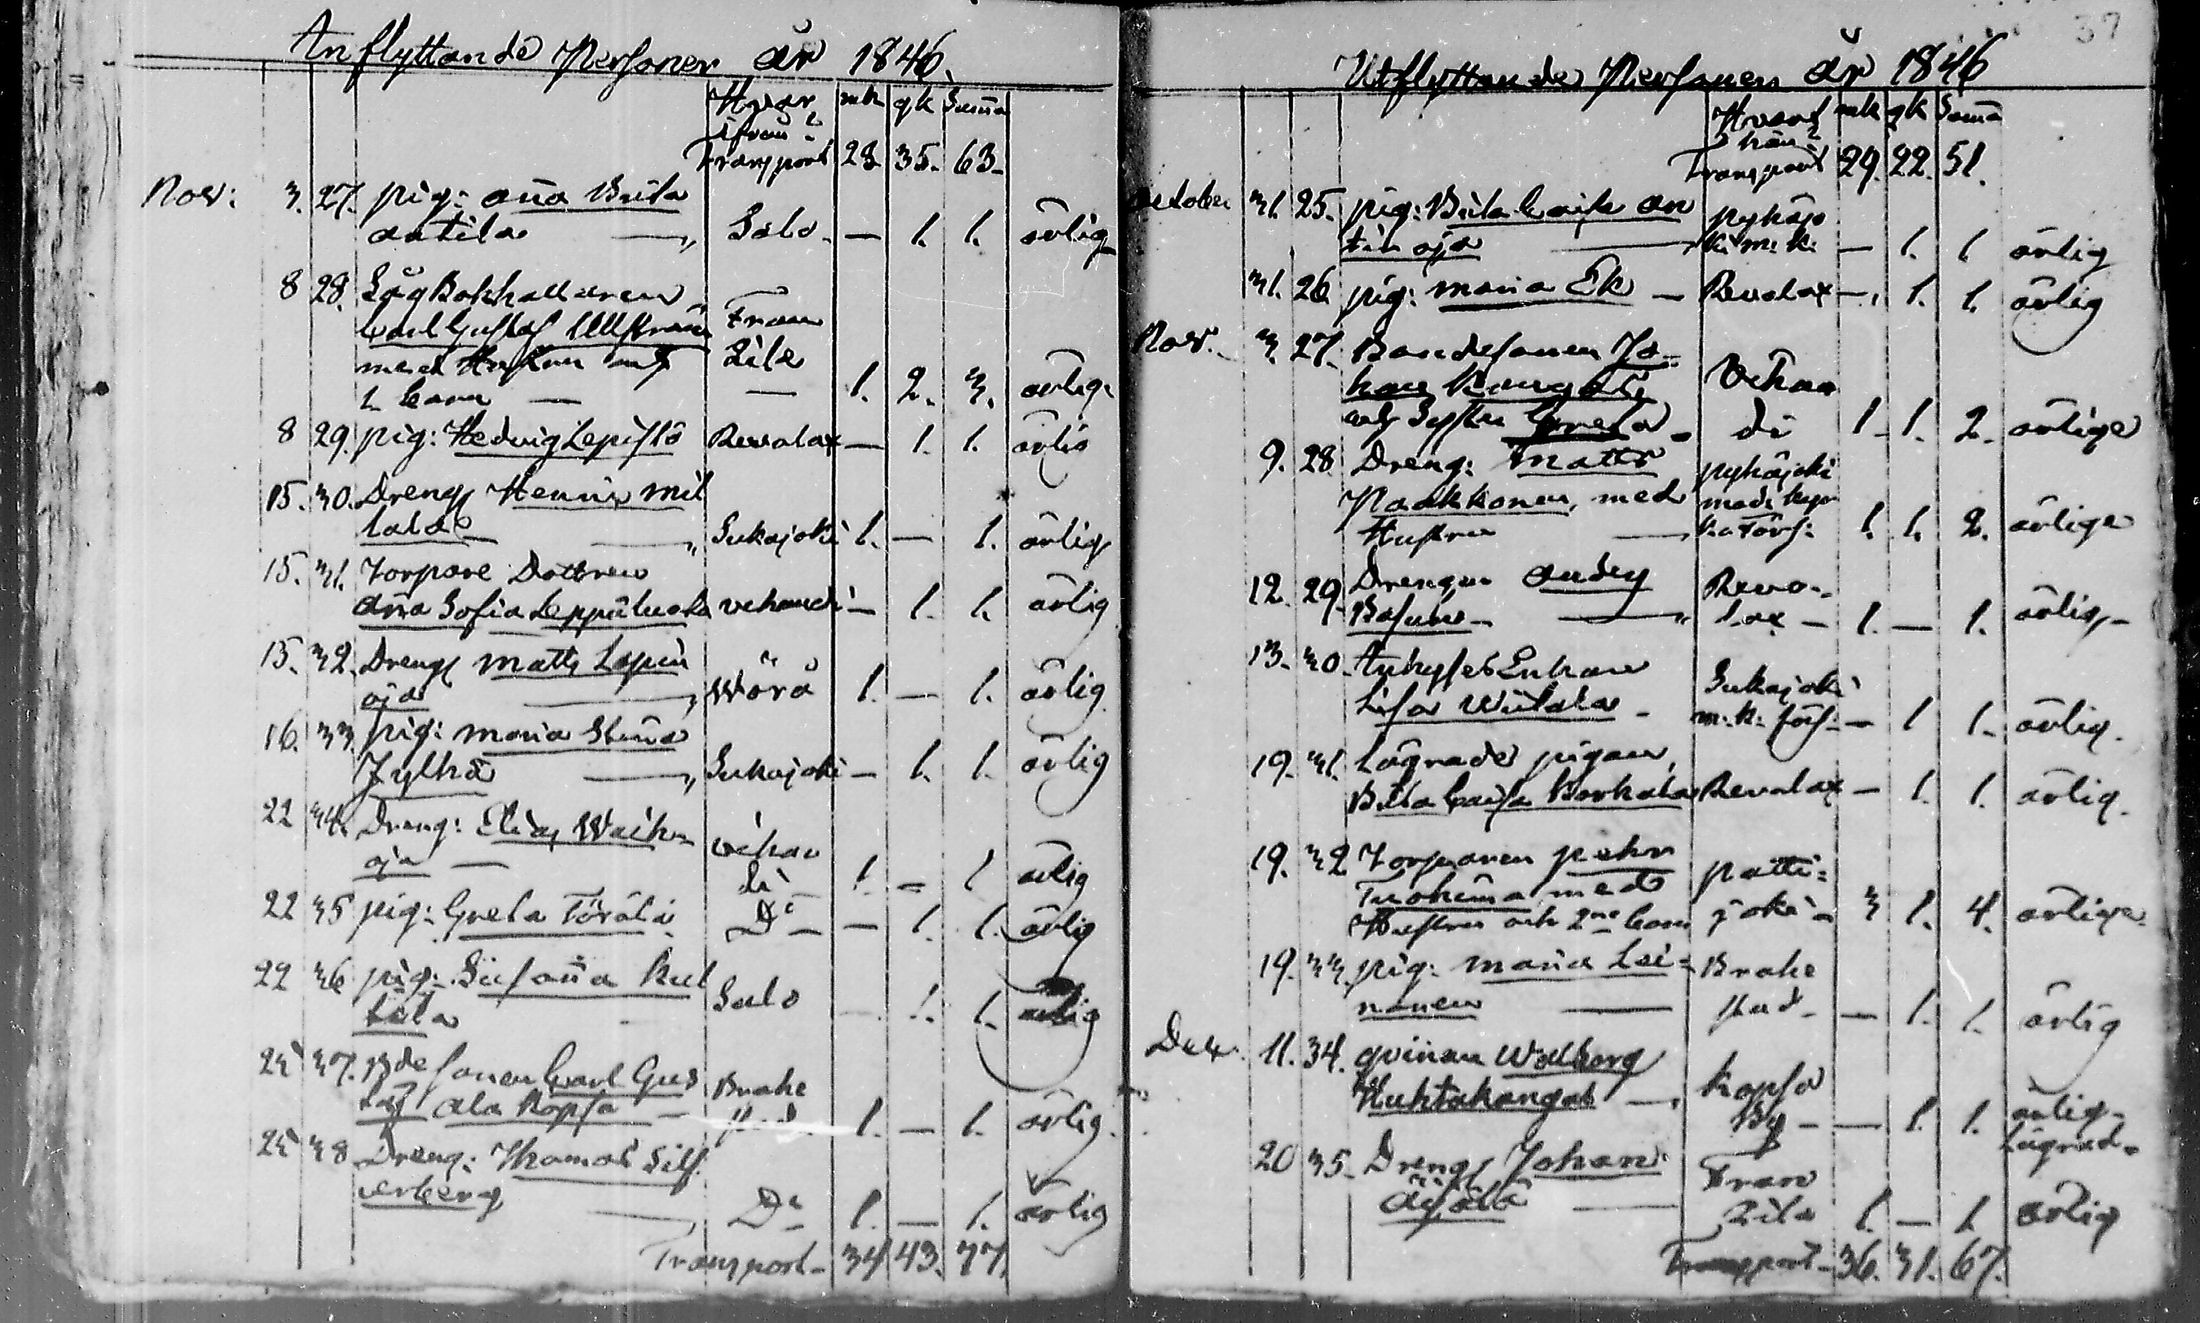 Anflyttande Personer år 1846.
Hvar
ifrån? mk qk Suma
Transport 28. 35. 63.
Nov: 3. 27. pig: Aña Brita
Antila Salo. — 1. 1. ärlig
8 28. Båkhållaren
Carl Gustaf
med Hustru och
1 barn — Fran
zila — 1. 2. 3. ärlige
8 29. pig: Hedvig Lepistö Revolax — 1. 1. ärlig
15. 30. Dreng Henric Mat
tala Sukajoki 1. — 1. ärlig
15. 31. Torpare Dottren
Aña Sofia Leppäluoto vehandi — 1. 1. ärlig
15. 32. Dreng Matts Lapin
oja Wörå 1. — 1. ärlig
16. 33. pig: Maria Stina
Jylhä Sukajoki — 1. 1. ärlig
22 34. Dreng: Elias
oja — vihan
di 1. — 1 ärlig
22 35 pig: Greta Törälä Do — — 1. 1. ärlig
22 36 pig: Susaña
tila Salo — 1. 1. ärlig
25 37. Bde sonen Carl Gus
taf Ala Kopsa — Brahe
stad 1. — 1. ärlig.
25 38 Dreng: Thomas Silf
verberg Do 1. — 1. ärlig
Transport — 34 43. 77.
37
Utflyttande Personer år 1846
Hvart
hän? mk qk Suma
Transport 29. 22. 51.
October 31. 25. pig: Brita Caisa An
tin oja pyhäjo
ki m: k: — 1. 1 ärlig
31. 26. pig: Maria Ek — Revolax — 1. 1. ärlig
Nov. 3. 27. Bondesonen Jo-
han
och Syster Greta — Vihan
di 1. 1. 2. ärlige
9. 28. Dreng: Matts
Naakkonen, med
Hustru pyhäjoki
förs: 1. 1. 2. ärlige
12. 29. Drengen Anders
Revo-
lax — 1. — 1. ärlig —
13. 30. Inhyses Enkan
Lisa — Sukajoki
m. k. förs: — 1 1. ärlig.
19. 31. Lägrade pigan,
Brita Caisa Korkala Revolax — 1. 1. ärlig.
19. 32 Torparen Pehr
Tuohima med
Hustru och 2ne barn patti=
joki — 3 1. 4. ärlige
19. 33. pig: Maria Lei=
nonen Brahe
stad — — 1. 1. ärlig
Dec. 11. 34. qvinan Walborg
Huhtakangas — Kopsa
By — — 1. 1. ärlig —
Lägrad —
20 35. Dreng Johan
Fran
zila 1. — 1. ärlig
Transport — 36. 31. 67.